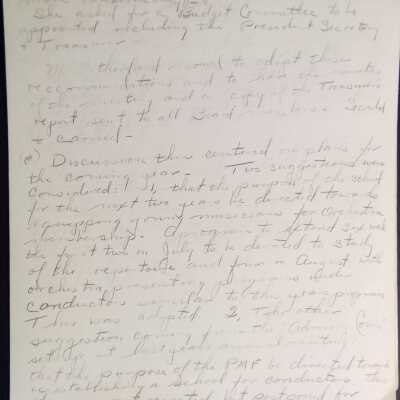 She asked for a Budget Committee to be
appointed including the President Secretary
& Treasurer
moved to adopt these
recommendations and to have the minutes
of the meeting and a copy of the Treasurers
report sent to all Board members. Seconded
& carried -
Discussion then centered on plans for
the coming year - Two suggestions were
considered: 1, that the purpose of the school
for the next two years be directed towards
equipping young musicians for Orchestra
membership. A program to extend six weeks
the first two in July to be devoted to study
of the repertoire and four in August with
orchestra presenting programs under
conductors similar to this years program
This was adopted 2, The other
suggestion coming from the Advisory
set up at last years annual meeting
that the purpose of the PMF be directed toward
establishing a school for conductors. This
postponed for